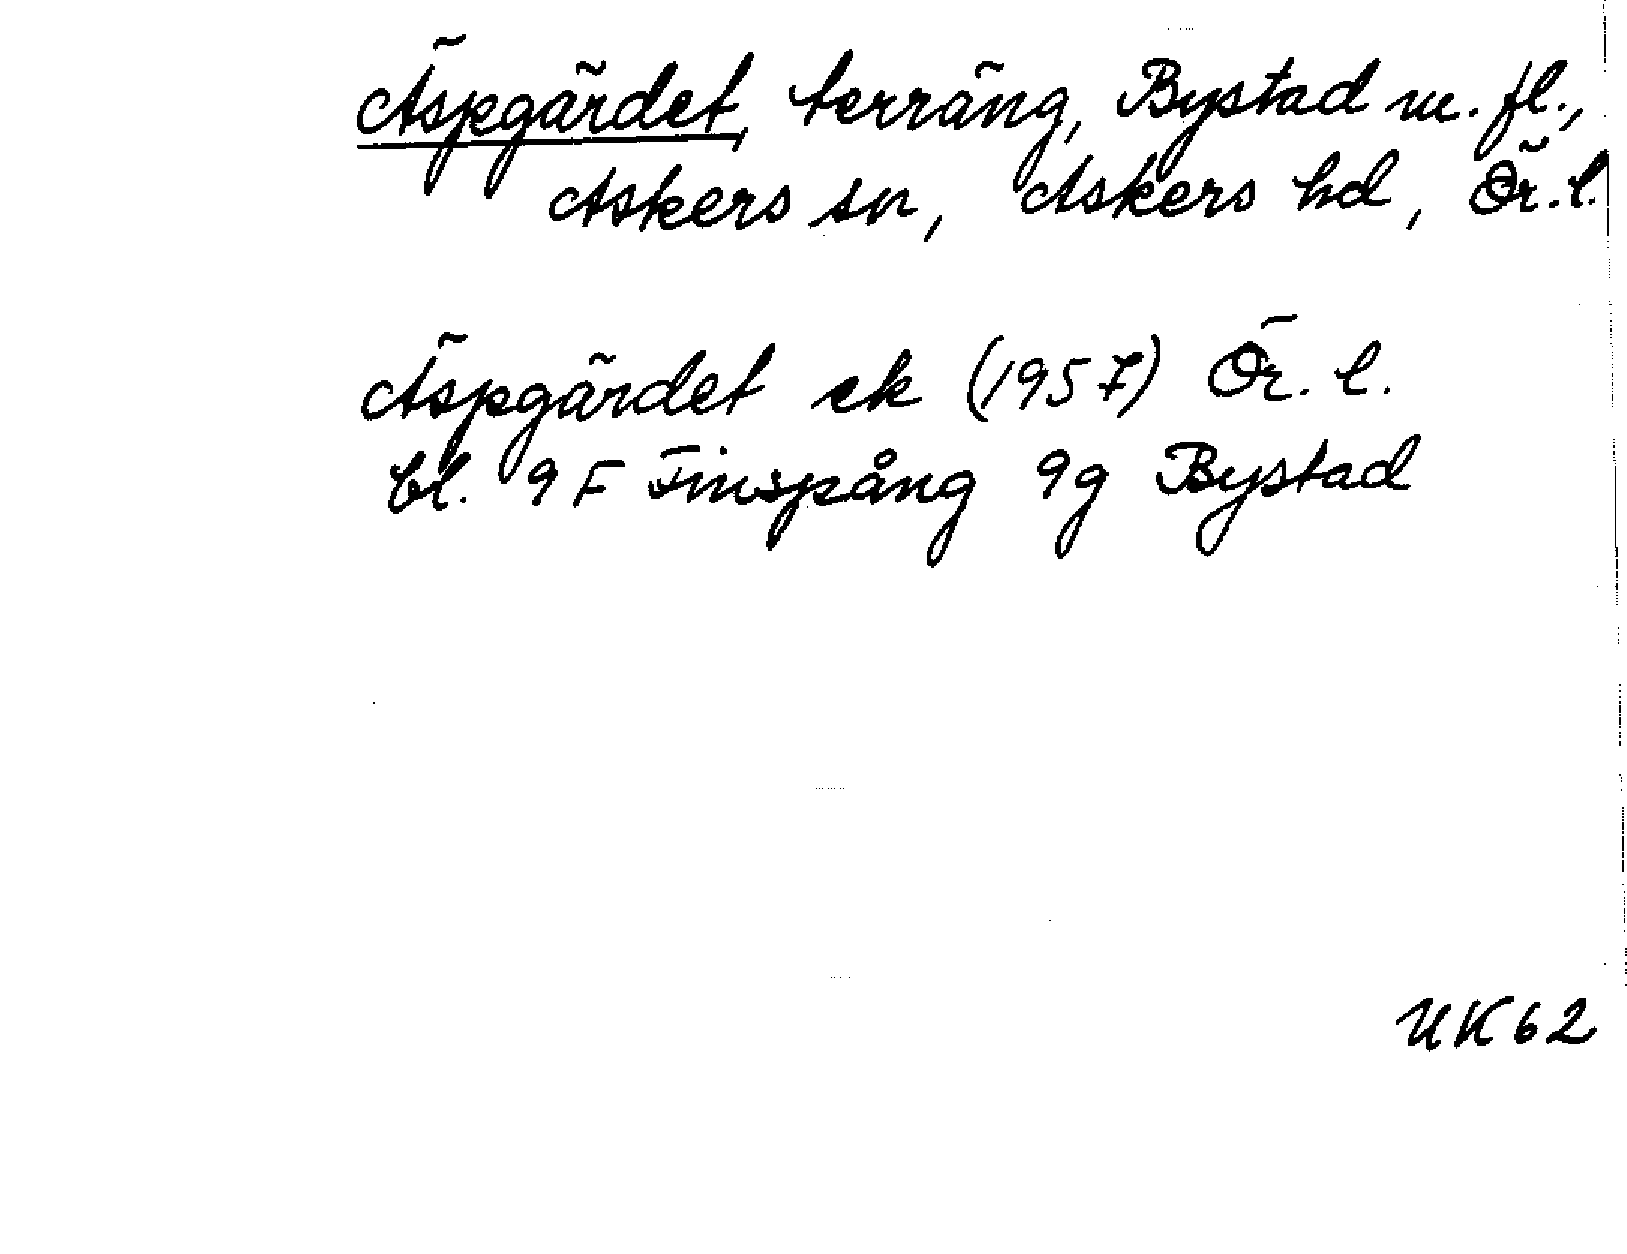 Äspgärdet, terräng, Bystad m. fl.,
Askers sn, Askers hd, Ör. l.
Äspgärdet ek (1957) Ör. l.
bl. 9 F Finspång 9g Bystad
UK 62